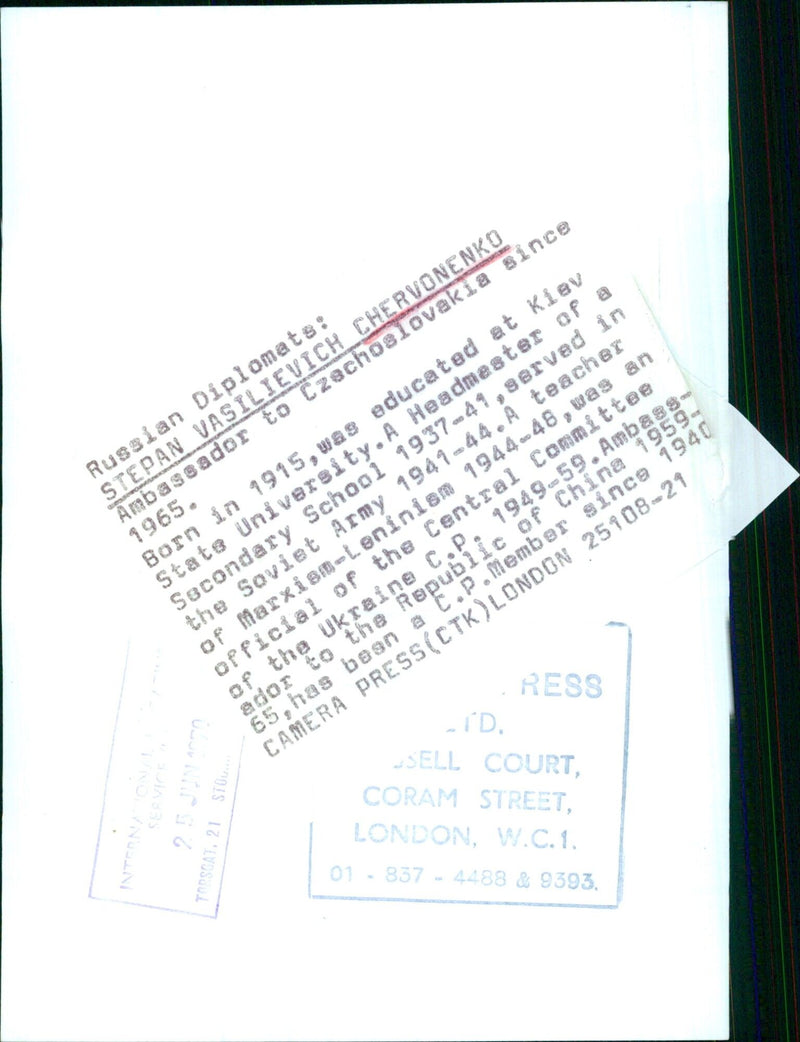 Russian Diplomats:
STEPAN VASILIEVICH CHERVONENKO
Ambassador to Czechoslovakia since
1965.
Born in 1915,was educated at Kiev
State University.A Headmaster of a
Secondary School 1937-41,served in
the Soviet Army 1941-44.A teacher
of Marxism-Leninism 1944-48,was an
official of the Central Committee
of the Ukraine C.P. 1949-59.Ambass-
ador to the Republic of China 1959-
65,has been a C.P.Member since 1940
CAMERA PRESS(CTK)LONDON 25108-21
RESS
TD.
SELL COURT,
CORAM STREET,
LONDON, W.C.1.
01 - 837 - 4488 & 9393.
INTERNATIONAL
SERVICE
25 JUN
TORSGAT. 21